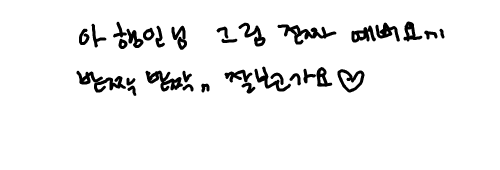 아 행인님 그림 진짜 예뻐요ㅠㅠ
반짝반짝,, 잘보고가요♡